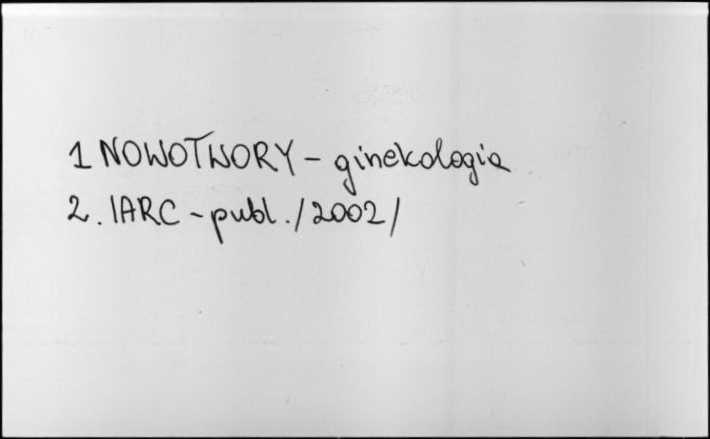 1 NOWOTWORY - ginekologia
2. IARC - publ. /2002/